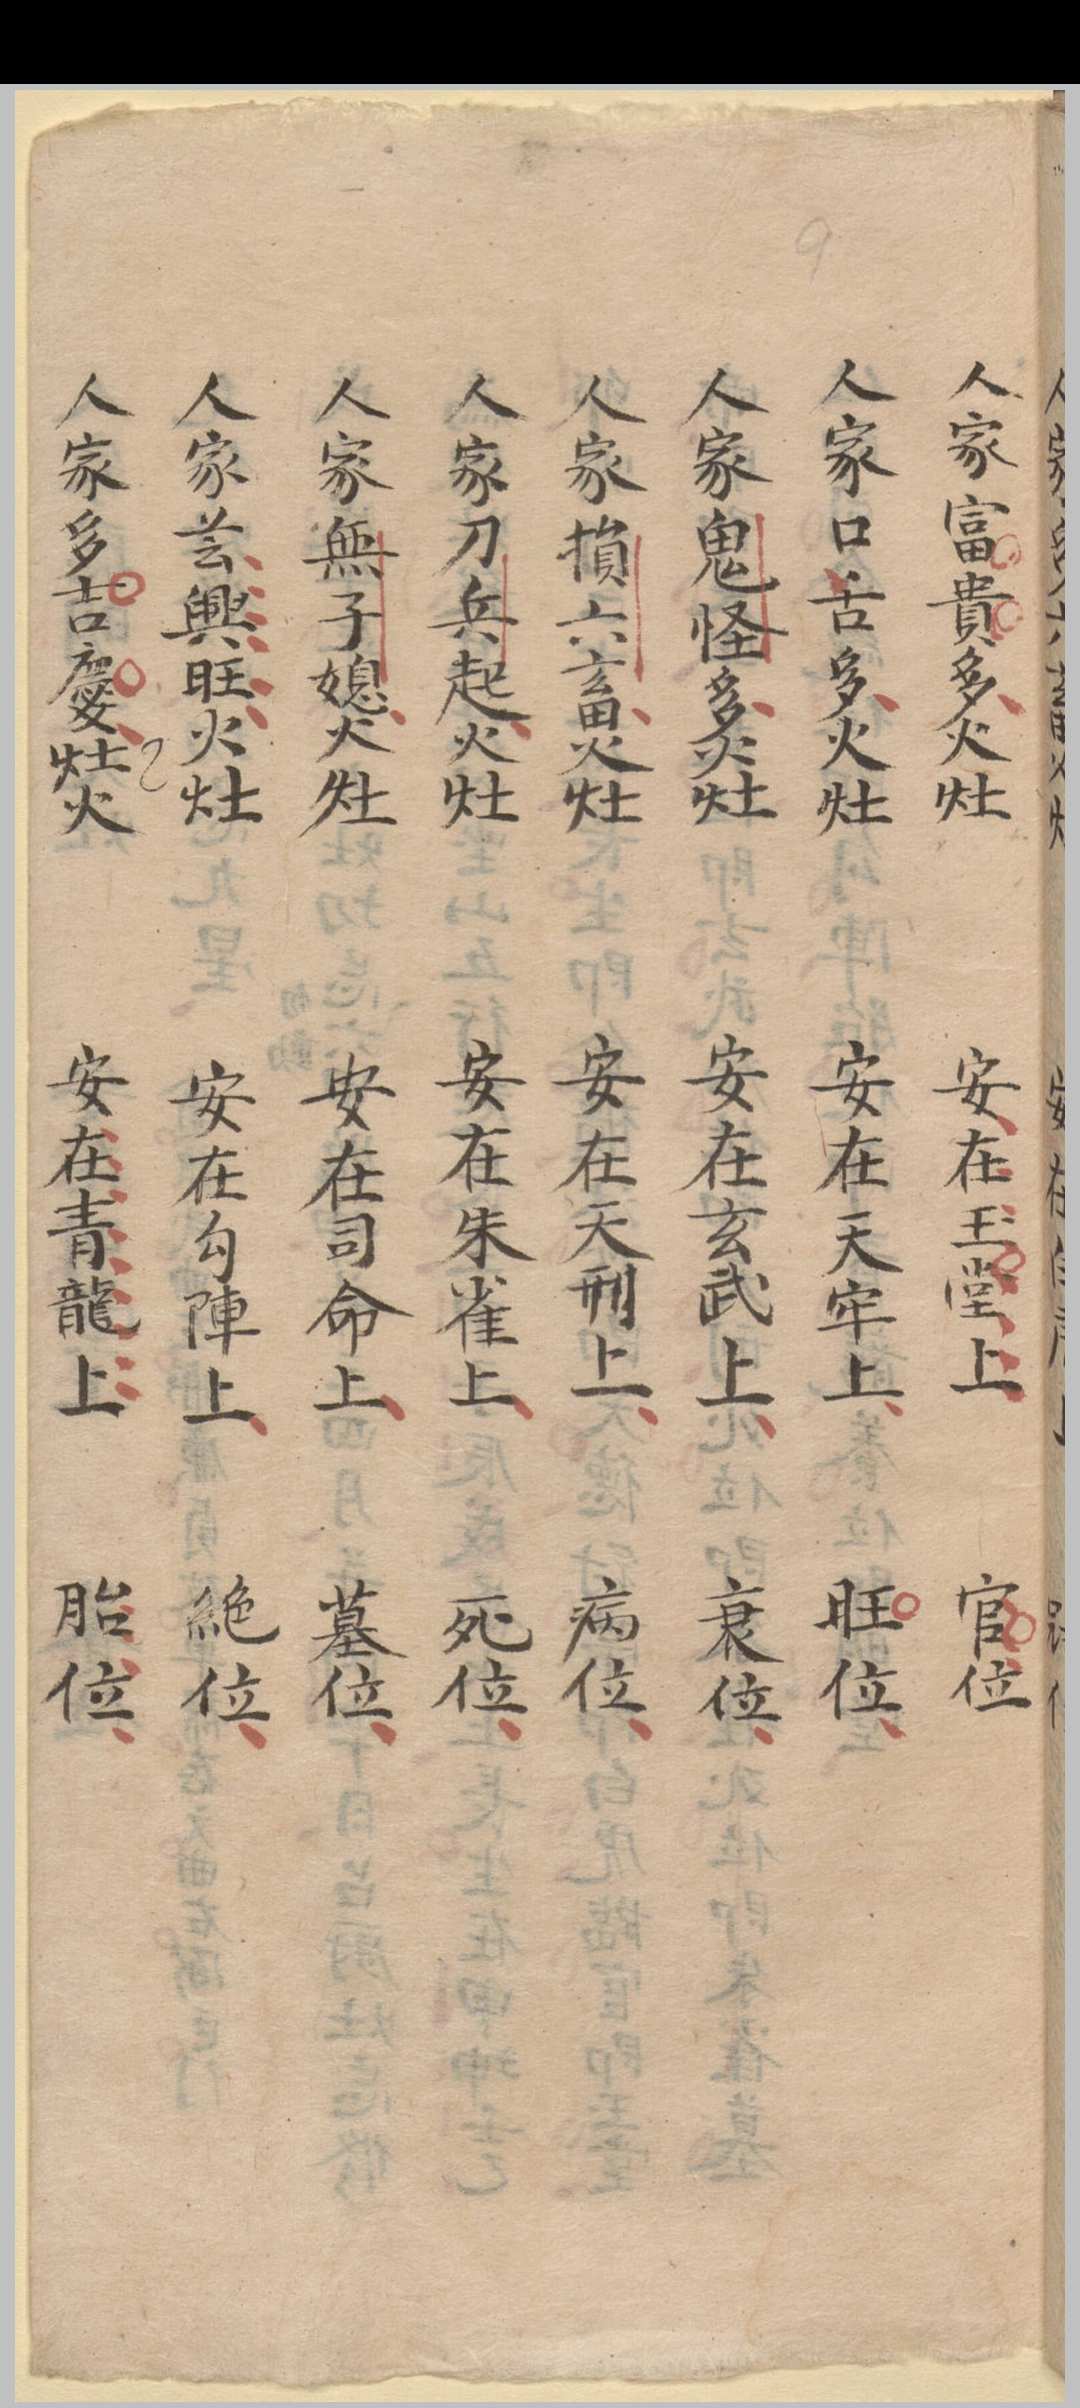 人家富貴多火灶 安在玉堂上 官位
人家口舌多火灶 安在天牢上 旺位
人家鬼怪多火灶 安在玄武上 衰位
人家損六畜火灶 安在天刑上 病位
人家刀兵起火灶 安在朱雀上 死位
人家無子媳火灶 安在司命上 墓位
人家興旺火灶 安在勾陣上 絕位
人家多吉慶灶火 安在青龍上 胎位